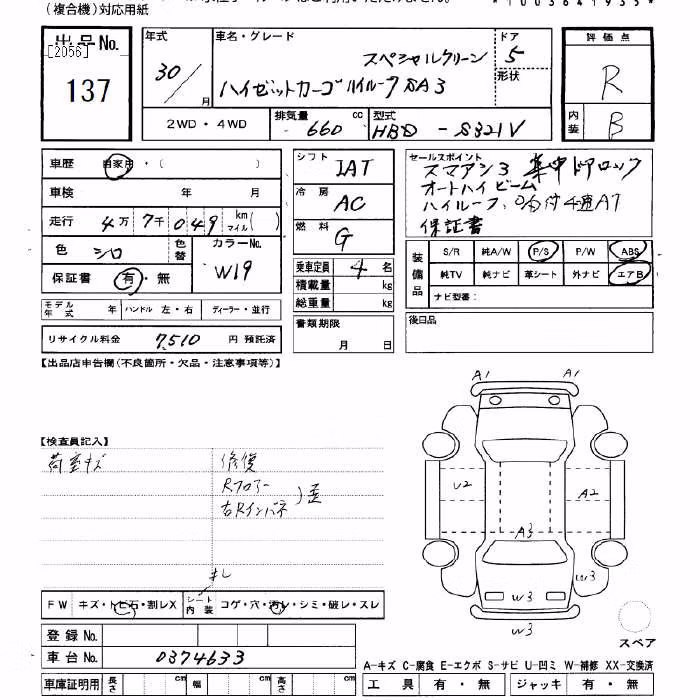 (複合機)対応用紙
*1003641935*
出品No.
[2056]
137
年式
30/
月
車名・グレード
スペシャルクリーン
ハイゼットカーゴ ハイルーフSA3
ドア
5
形状
2WD・4WD
排気量 660 cc
型式 HBD - S321V
評価点
R
内装
B
車歴 自家用・( )
車検 年 月
走行 4万7千049 km マイル( )
色 シロ
色替
カラーNo.
W19
保証書 有・無
モデル年式 年 ハンドル 左・右 ディーラー・並行
リサイクル料金 7,510 円 預託済
シフト IAT
冷房 AC
燃料 G
乗車定員 4 名
積載量 kg
総重量 kg
書類期限
月 日
セールスポイント
スマアシ3 集中ドアロック
オートハイビーム
ハイルーフ
4速AT
保証書
装備品
S/R 純A/W P/S P/W ABS
純TV 純ナビ 革シート 外ナビ エアB
ナビ型番:
後日品
【出品店申告欄(不良箇所・欠品・注意事項等)】
【検査員記入】
荷室キズ
修復
Rフロアー
右Rインパネ
)歪
A1 A1
U2 A2
A3
W3 W3
W3
スペア
FW キズ・トビ石・割レX
シート内装 コゲ・穴・汚レ・シミ・破レ・スレ
登録No.
車台No. 0374633
車庫証明用 長さ cm 幅 cm 高さ cm
A-キズ C-腐食 E-エクボ S-サビ U-凹ミ W-補修 XX-交換済
工具 有・無 ジャッキ 有・無